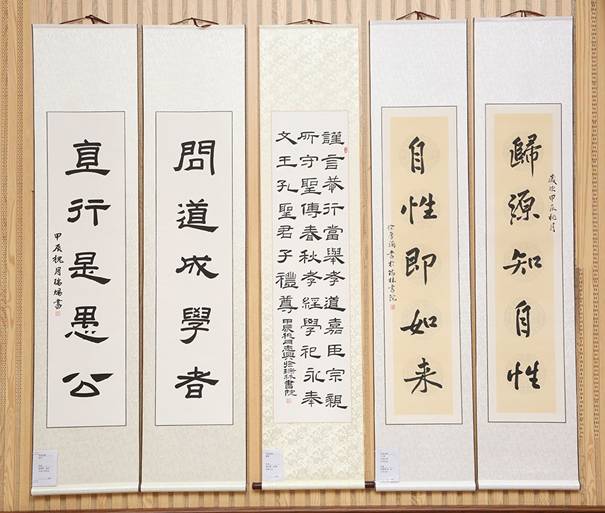 歲次甲辰桃月
歸源知自性
自性即如来
書於瑞林書院
謹言行當舉孝道嘉臣宗親
所守聖傳春秋孝經學祀永奉
文王孔聖君子禮尊
甲辰桃月志興於瑞林書院
問道成學者
直行是愚公
甲辰桃月瑞書